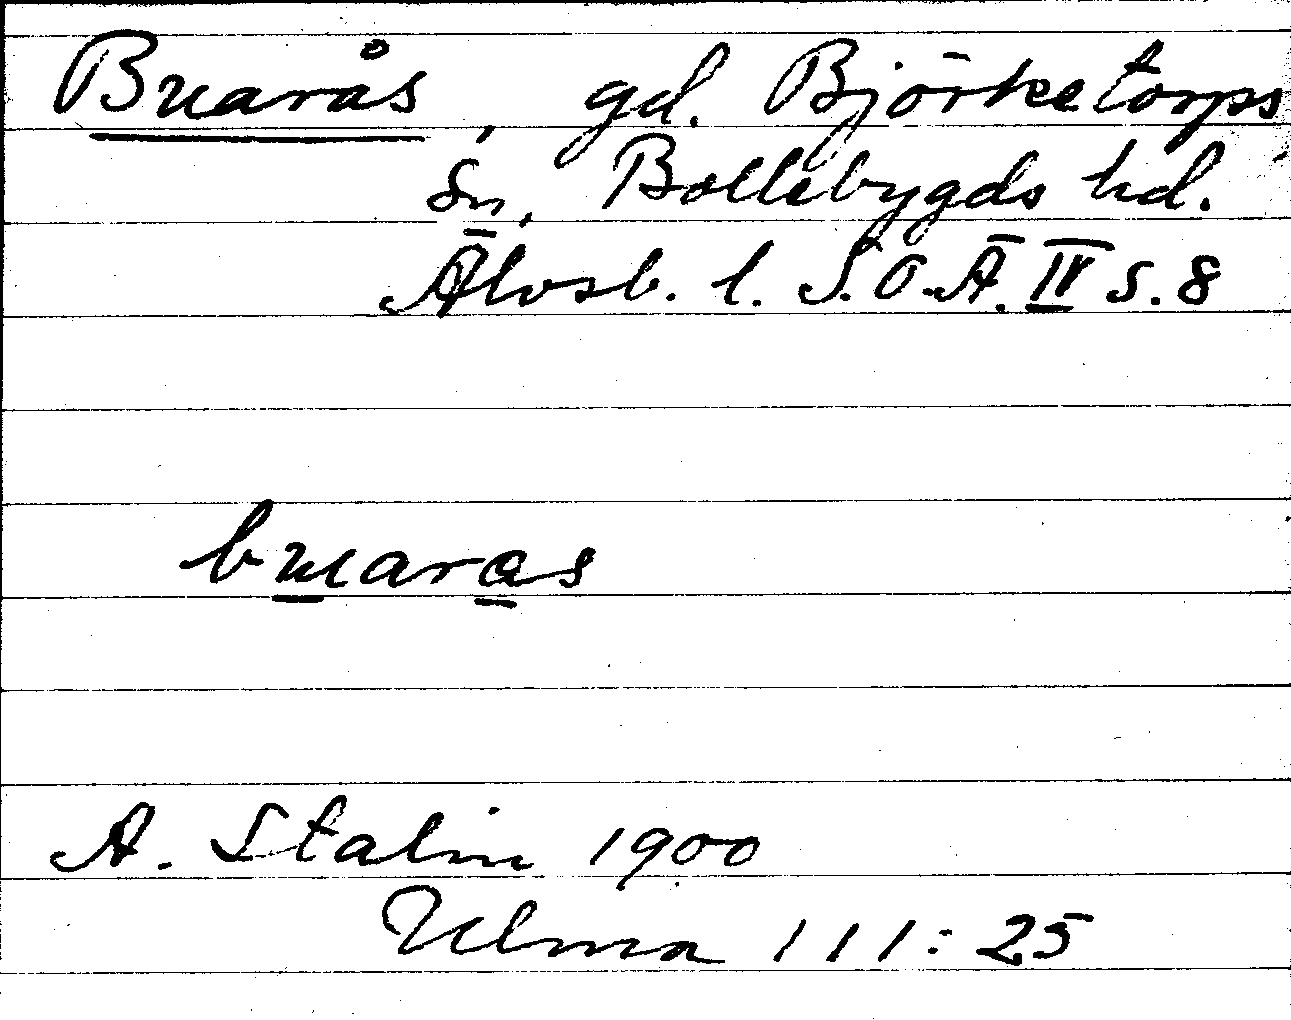 Buarås, gd. Björketorps
sn, Bollebygds hd.
Älvsb. l. S.O.Ä. IV s. 8
buaras
A. Stalin 1900
Ulma 111:25